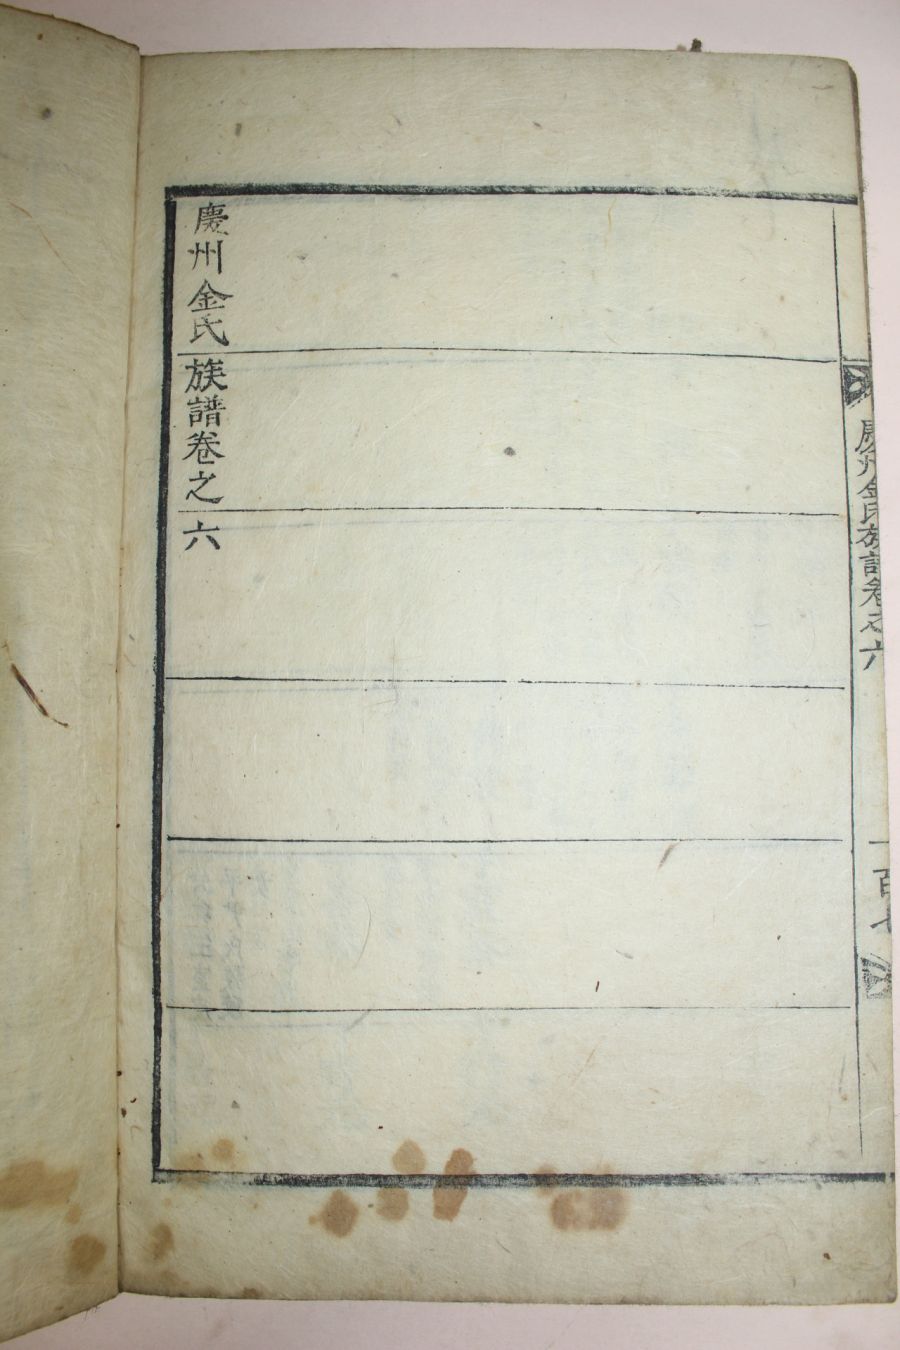 慶州金氏族譜卷之六
慶州金氏族譜卷之六
一百七